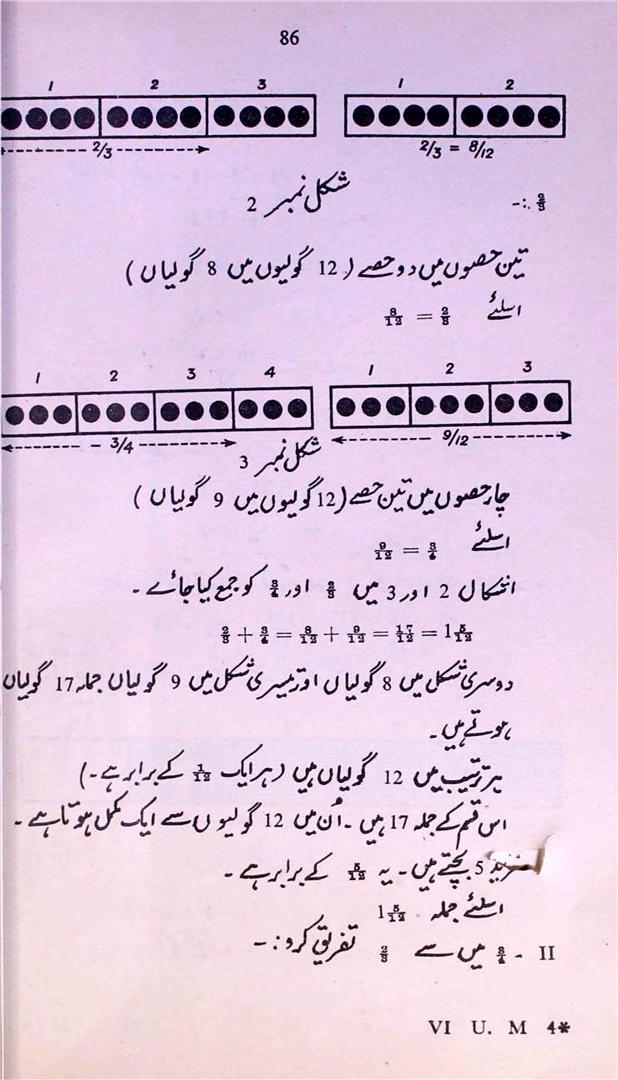 86
1 2 3 1 2
2/3 2/3 = 8/12
شکل نمبر 2
2/3 :-
تین حصوں میں دو حصے ( 12 گولیوں میں 8 گولیاں )
اسلئے 2/3 = 8/12
1 2 3 4 1 2 3
3/4 9/12
شکل نمبر 3
چار حصوں میں تین حصے (12 گولیوں میں 9 گولیاں )
اسلئے 3/4 = 9/12
اشکال 2 اور 3 میں 2/3 اور 3/4 کو جمع کیا جائے ۔
2/3 + 3/4 = 8/12 + 9/12 = 17/12 = 1 5/12
دوسری شکل میں 8 گولیاں اور تیسری شکل میں 9 گولیاں جملہ 17 گولیاں
ہوتے ہیں۔
ہر ترتیب میں 12 گولیاں ہیں (ہر ایک 1/12 کے برابر ہے۔)
اس قسم کے جملہ 17 ہیں ۔ اُن میں 12 گولیوں سے ایک مکمل ہوتا ہے ۔
مزید 5 بچتے ہیں۔ یہ 5/12 کے برابر ہے ۔
اسلئے جملہ 1 5/12
II - 3/4 میں سے 2/3 تفریق کرو :-
VI U. M 4*